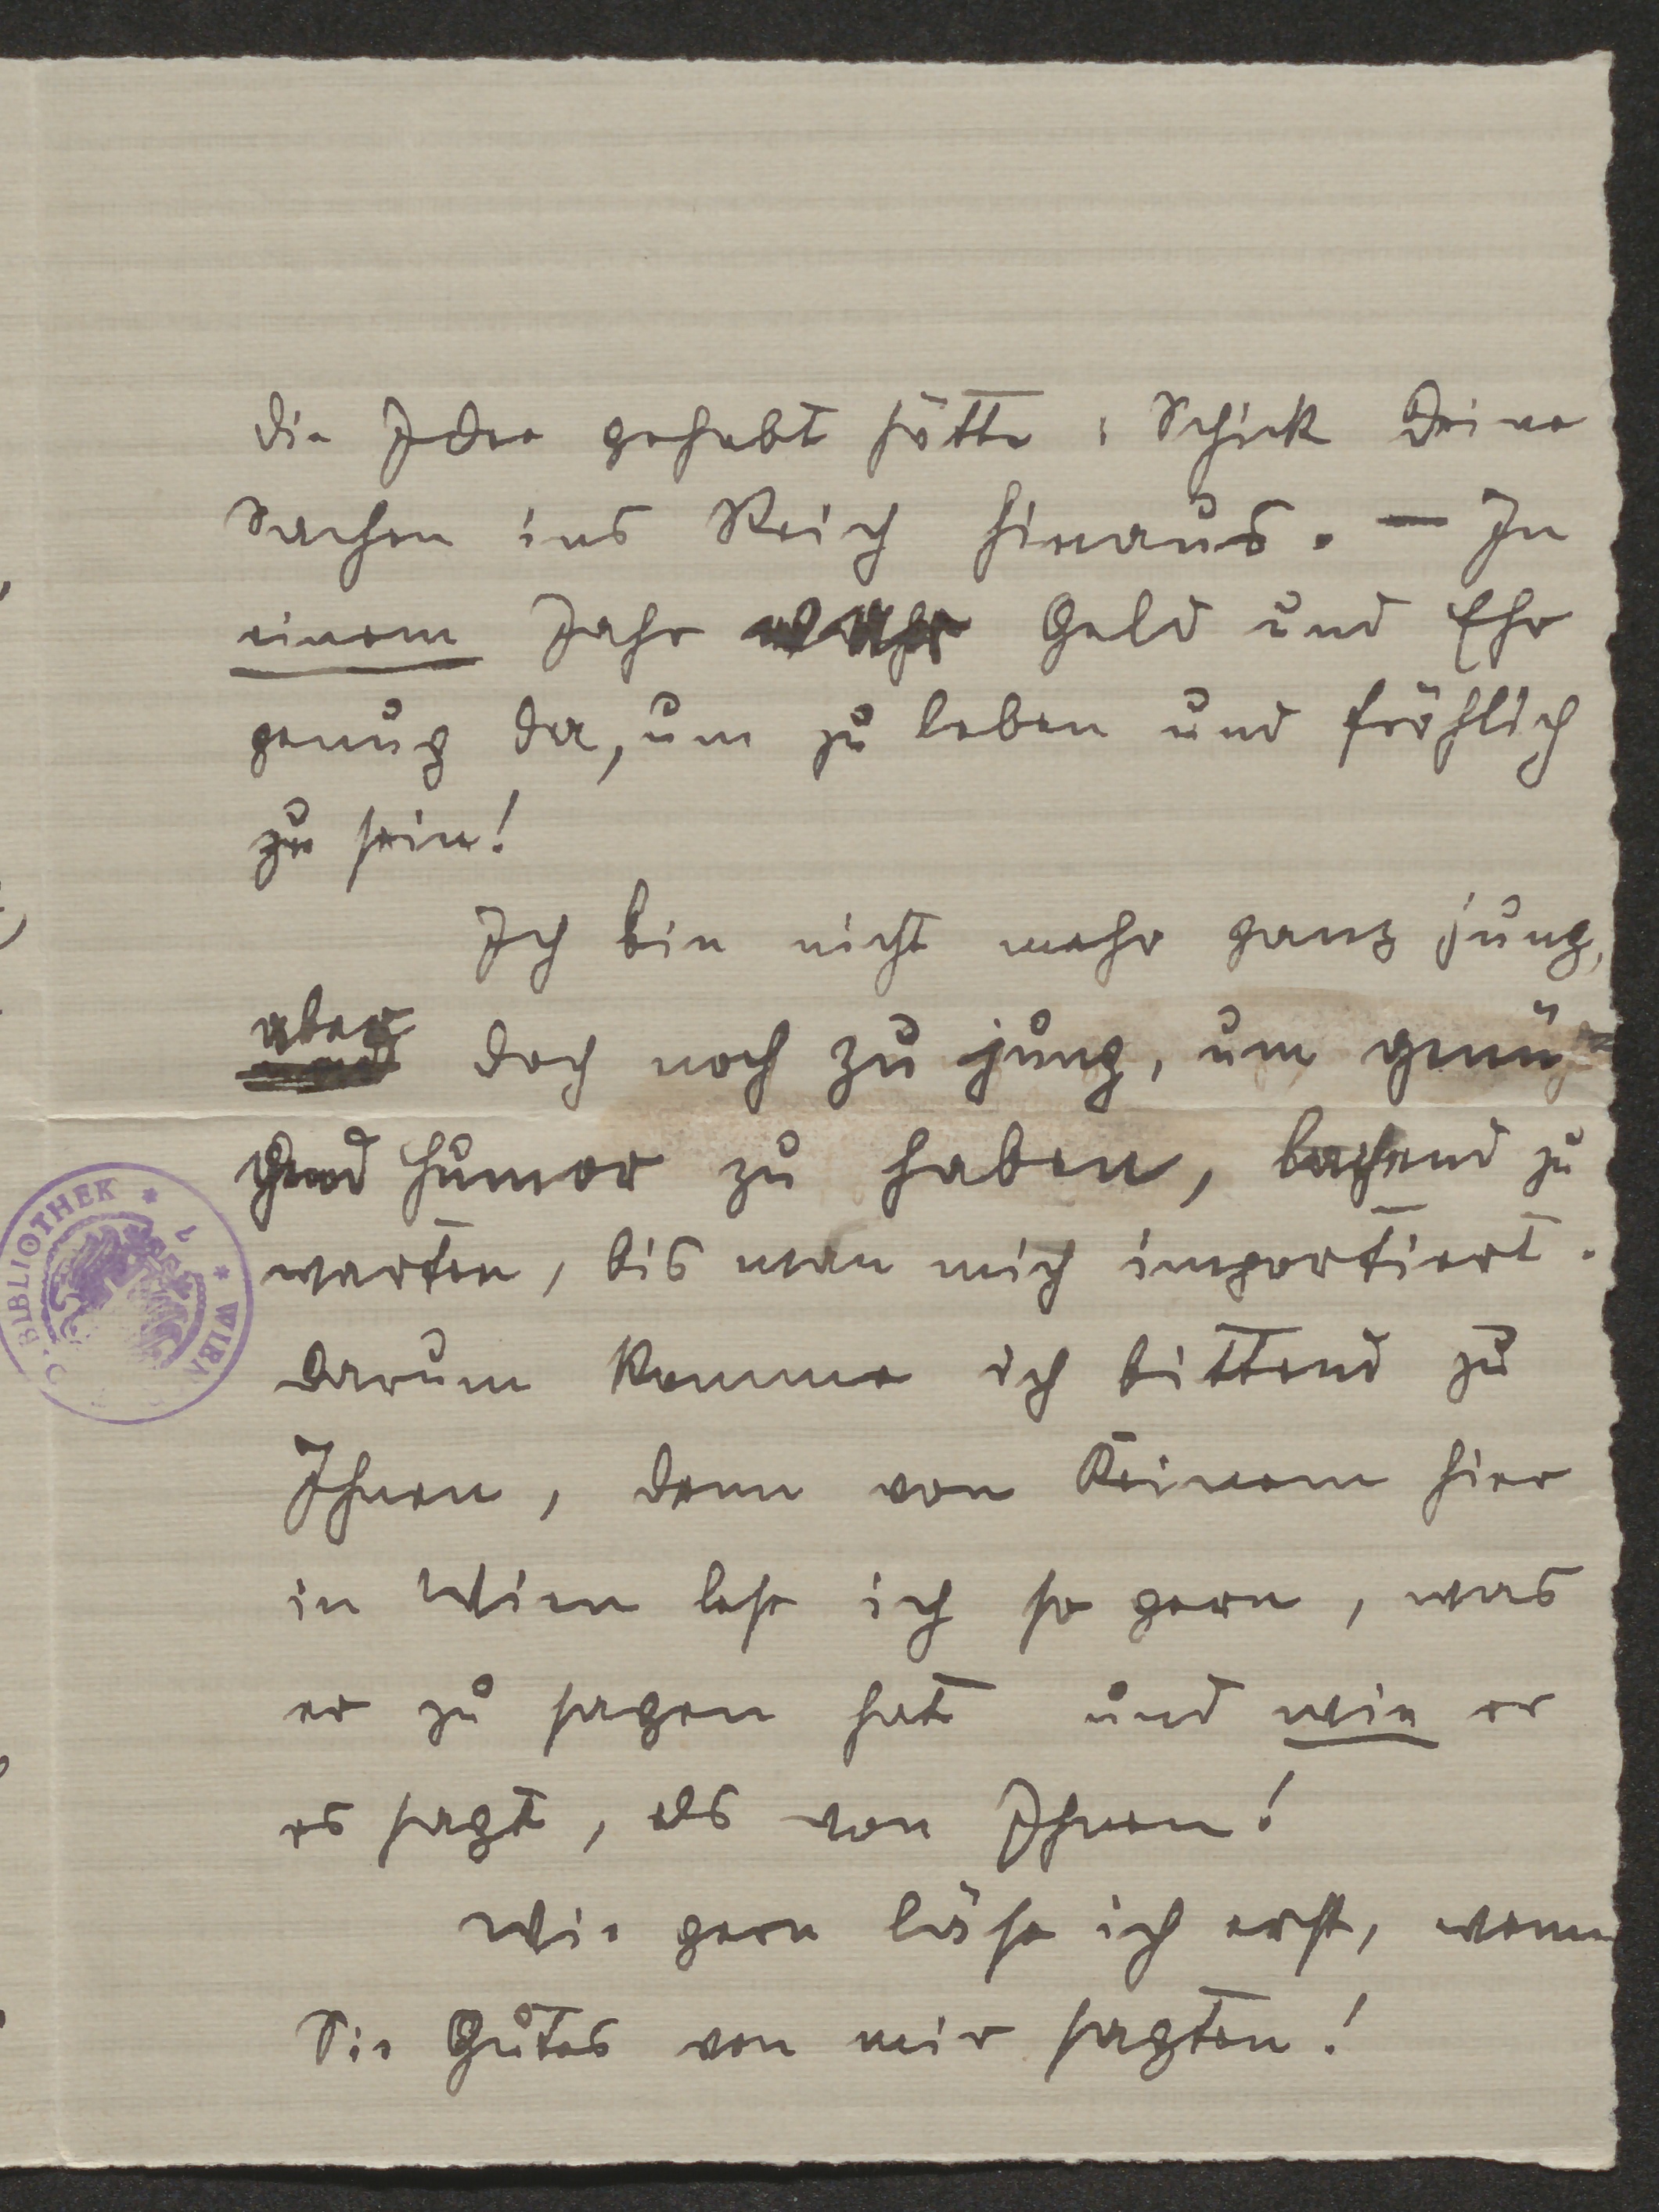 die Idee gehabt hätte: Schick Deine
Sachen ins Reich hinaus. — In
einem Jahr wäre Geld und Ehr
genug da, um zu leben und fröhlich
zu sein!
Ich bin nicht mehr ganz jung,
aber
doch noch zu jung, um genü-
gend Humor zu haben, lachend zu
warten, bis man mich importiert.
Darum komme ich bittend zu
Ihnen, denn von Keinem hier
in Wien lese ich so gern, was
er zu sagen hat und wie er
es sagt, als von Ihnen!
Wie gern läse ich erst, wenn
Sie Gutes von mir sagten!
BIBLIOTHEK * * WIEN